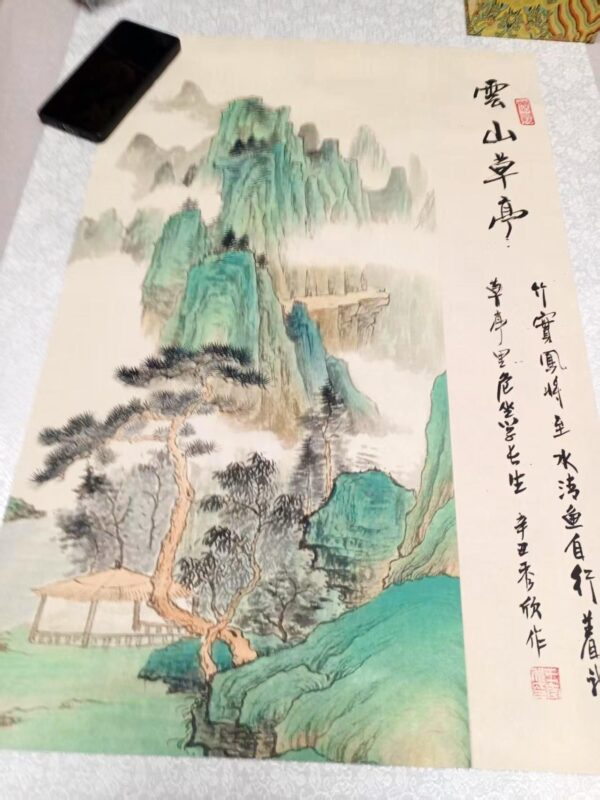 雲山草亭
竹實鳳將至水清魚自行着我
草亭里危坐学长生 辛丑秀欣作